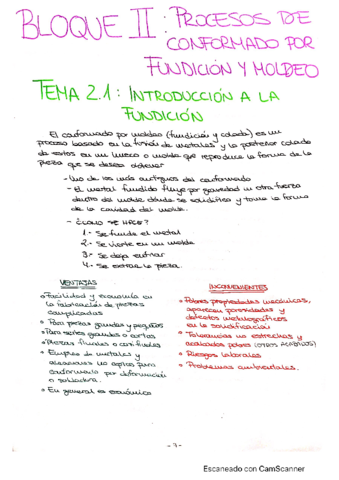 BLOQUE II: PROCESOS DE
CONFORMADO POR
FUNDICIÓN Y MOLDEO
TEMA 2.1: INTRODUCCIÓN A LA
FUNDICIÓN
El conformado por moldeo (fundición y colada) es un
proceso basado en la fusión de metales y la posterior colada
de estos en un hueco o molde que reproduce la forma de la
pieza que se desea obtener
- Uno de los más antiguos del conformado
- El metal fundido fluye por gravedad u otra fuerza
dentro del molde donde se solidifica y toma la forma
de la cavidad del molde.
- ¿CÓMO SE HACE?
1.- Se funde el metal
2.- Se vierte en un molde
3.- Se deja enfriar
4.- Se extrae la pieza.
VENTAJAS
• Facilidad y economía en
la fabricación de piezas
complicadas
• Para piezas grandes y pequeñas
• Para series grandes o cortas
• Piezas finales o casi finales
• Empleo de metales y
aleaciones no aptos para
conformado por deformación
o soldadura.
• En general es económico
INCONVENIENTES
• Pobres propiedades mecánicas,
aparecen porosidades y
defectos metalográficos
en la solidificación
• Tolerancias no estrechas y
acabados pobres (OTROS ACABADOS)
• Riesgos laborales
• Problemas ambientales.
Escaneado con CamScanner